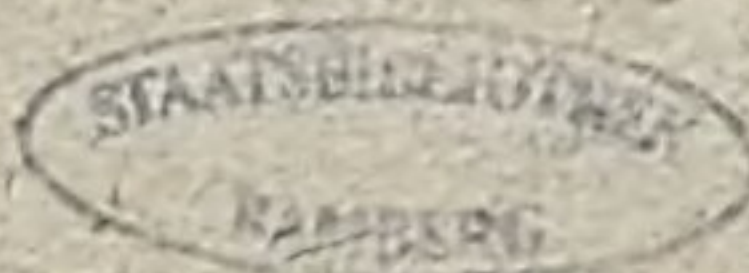 STAATSBIBLIOTHEK
BAMBERG